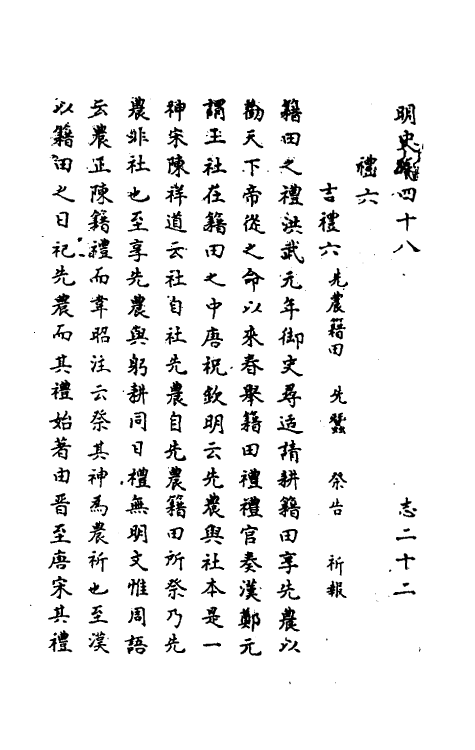 明史 四十八 志二十二
禮六
吉禮六 先農籍田 先蠶 祭告 祈報
籍田之禮洪武元年御史尋适請耕籍田享先農以
勸天下帝從之命以來春舉籍田禮禮官奏漢鄭元
謂王社在籍田之中唐祝欽明云先農與社本是一
神宋陳祥道云社自社先農自先農籍田所祭乃先
農非社也至享先農與躬耕同日禮無明文惟周語
云農正陳籍禮而韋昭注云祭其神為農祈也至漢
以籍田之日祀先農而其禮始著由晉至唐宋其禮